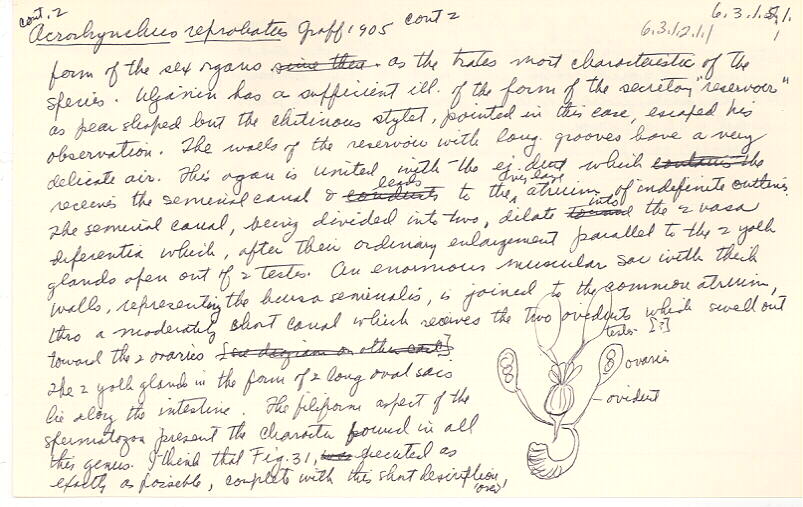 cont. 2
Acrorhynchus reprobatus Graff 1905 cont 2
6.3.1.2.1.1
6.3.1.
form of the sex organs since then as the traits most characteristic of the
species. Uljanin has a sufficient ill. of the form of the secretory "reservoir"
as pear shaped but the chitinous stylet, pointed in this case, escaped his
observation. The walls of the reservoir with long. grooves have a very
delicate air. This organ is united with the ej. duct which contains the
receives the seminal canal & conducts leads to the very large atrium of indefinite outlines.
The seminal canal, being divided into two, dilate toward into the 2 vasa
diferentia which, after their ordinary enlargement parallel to the 2 yolk
glands open out of 2 testes. An enormous muscular sac with thick
walls, representing the bursa seminalis, is joined to the common atrium,
thro a moderately short canal which receives the two oviducts which swell out
toward the 2 ovaries [see diagram on other card]
testes [?]
The 2 yolk glands in the form of 2 long oval sacs
ovaries
lie along the intestine. The filiform aspect of the
oviduct
spermatozoa present the character found in all
this genus. I think that Fig. 31, was executed as
exactly as possible, complete with this short description
(over)